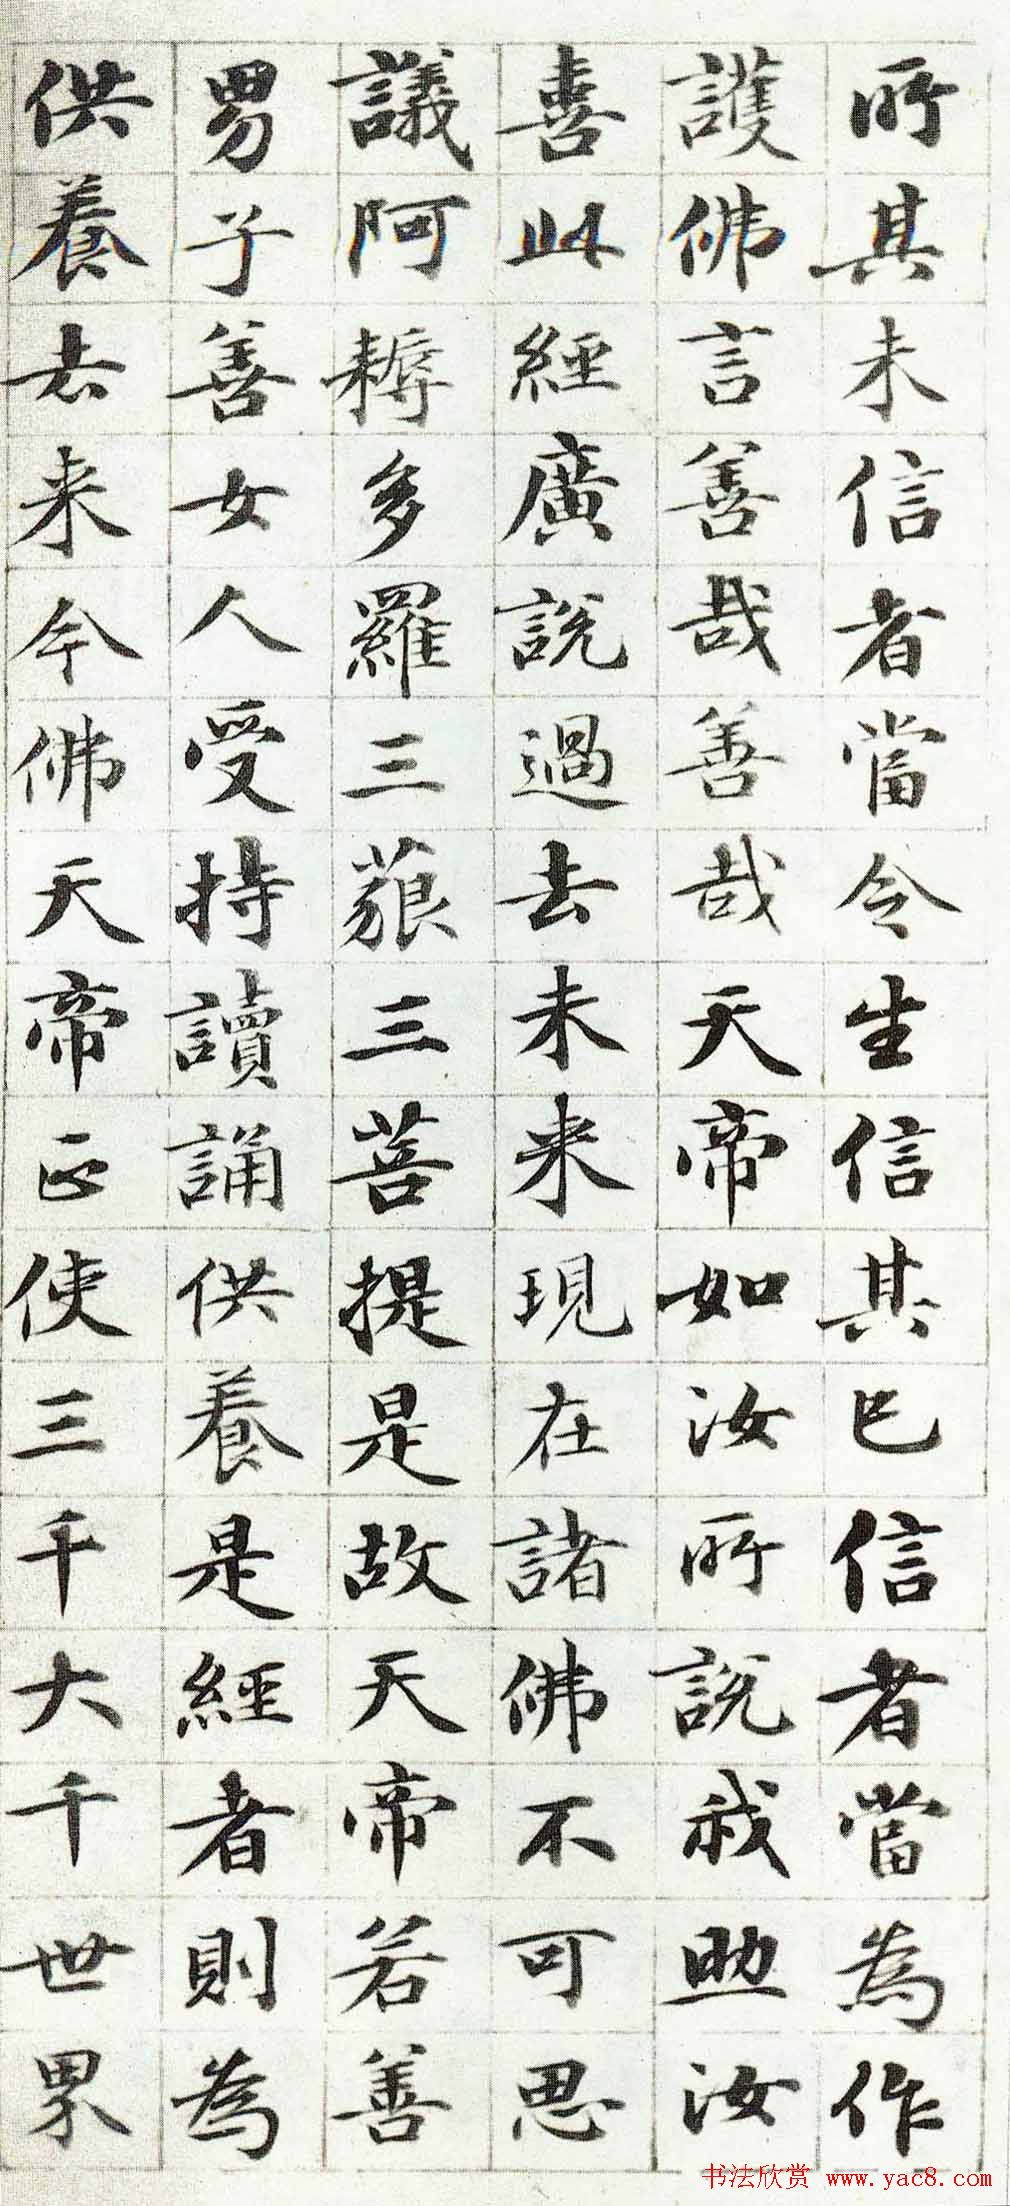 所其未信者當令生信其已信者當為作
護佛言善哉善哉天帝如汝所說我助汝
喜此經廣說過去未来現在諸佛不可思
議阿耨多羅三藐三菩提是故天帝若善
男子善女人受持讀誦供養是經者則為
供養去来今佛天帝正使三千大千世界
书法欣赏 www.yac8.com